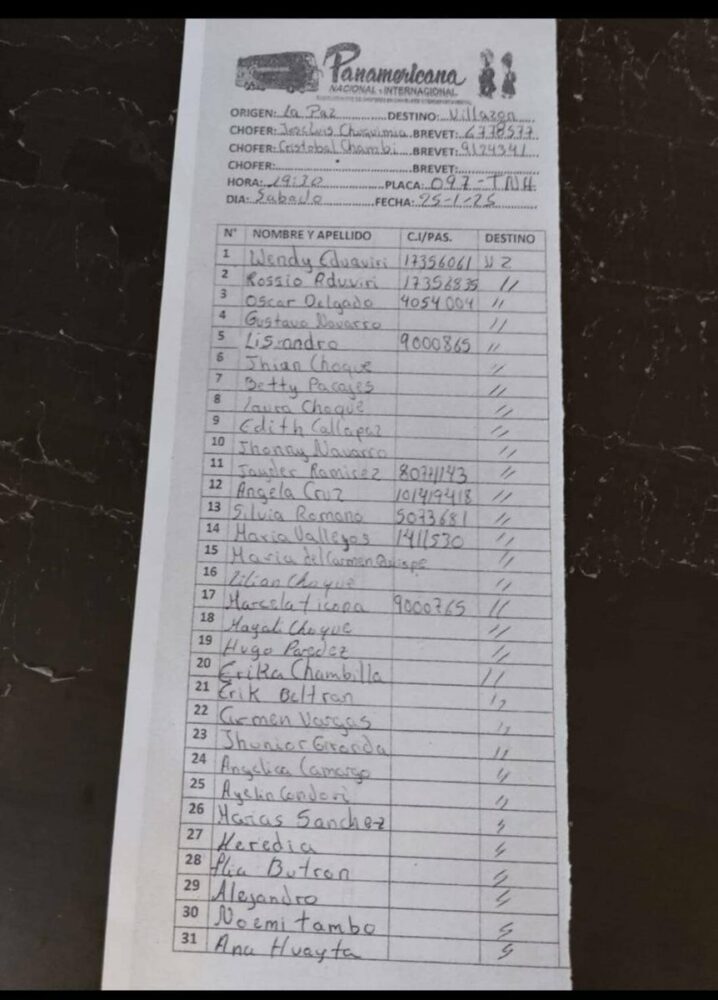 Panamericana
NACIONAL E INTERNACIONAL
ORIGEN: La Paz DESTINO: Villazon
CHOFER: Jose Luis Choquimia BREVET: 6778577
CHOFER: Cristobal Chambi BREVET: 9124341
CHOFER: BREVET:
HORA: 19:30 PLACA: 097-TNH
DIA: Sabado FECHA: 25-1-25
N° NOMBRE Y APELLIDO C.I/PAS. DESTINO
1 Wendy Eduaviri 17356061 VZ
2 Rossio Aduviri 17356835 //
3 Oscar Delgado 4054004 //
4 Gustavo Navarro //
5 Lisandro 9000865 //
6 Jhian Choque //
7 Betty Pacajes //
8 Laura Choque //
9 Edith Callapaz //
10 Jhonny Navarro //
11 Jayder Ramirez 8077143 //
12 Angela Cruz 101419418 //
13 Silvia Romano 5073681 //
14 Maria Vallejos 1411530 //
15 Maria del Carmen Quispe //
16 Lilian Choque //
17 Marcela ticona 9000765 //
18 Magali Choque //
19 Hugo Paredez //
20 Erika Chambilla //
21 Erik Beltran //
22 Carmen Vargas //
23 Jhunior Giranda //
24 Angelica Camargo //
25 Ayelin Condori //
26 Matias Sanchez //
27 Heredia //
28 Butron //
29 Alejandro //
30 Noemi tambo //
31 Ana Huayta //